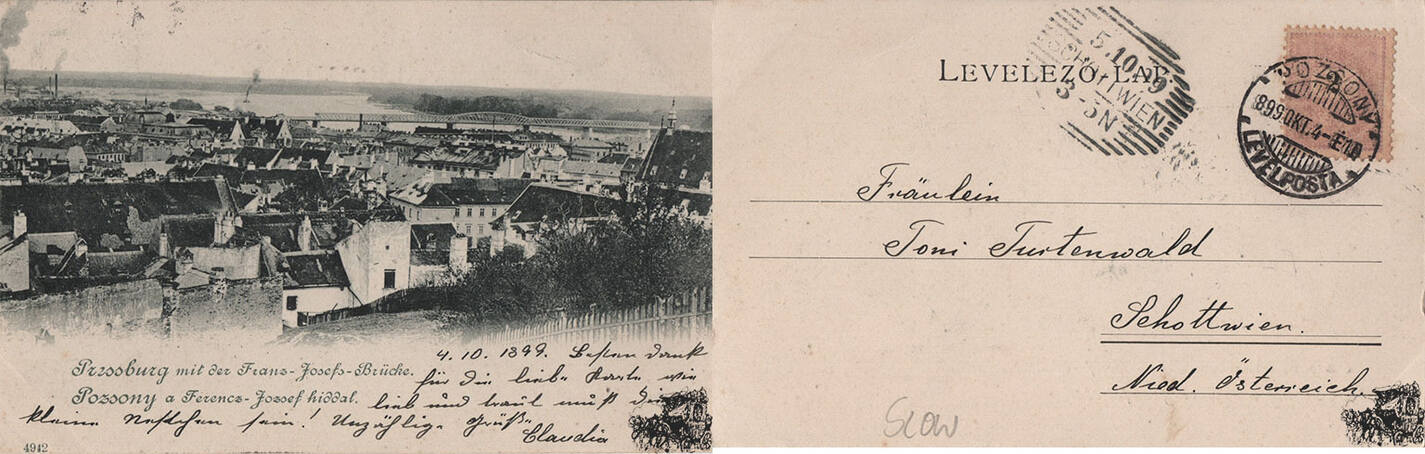 Pressburg mit der Franz-Josefs-Brücke.
Pozsony a Ferencz-József hiddal.
4. 10. 1899. Besten Dank
für die liebe Karte wie
lieb und traut muß die
kleine Nestchen sein! Unzählige Grüße
Claudia
4942
LEVELEZŐ-LAP
5.10.99
SCHOTTWIEN
3-3N
POZSONY
2
899 OKT. 4
LEVELPOSTA
Fräulein
Toni Turtenwald
Schottwien.
Nied. Österreich.